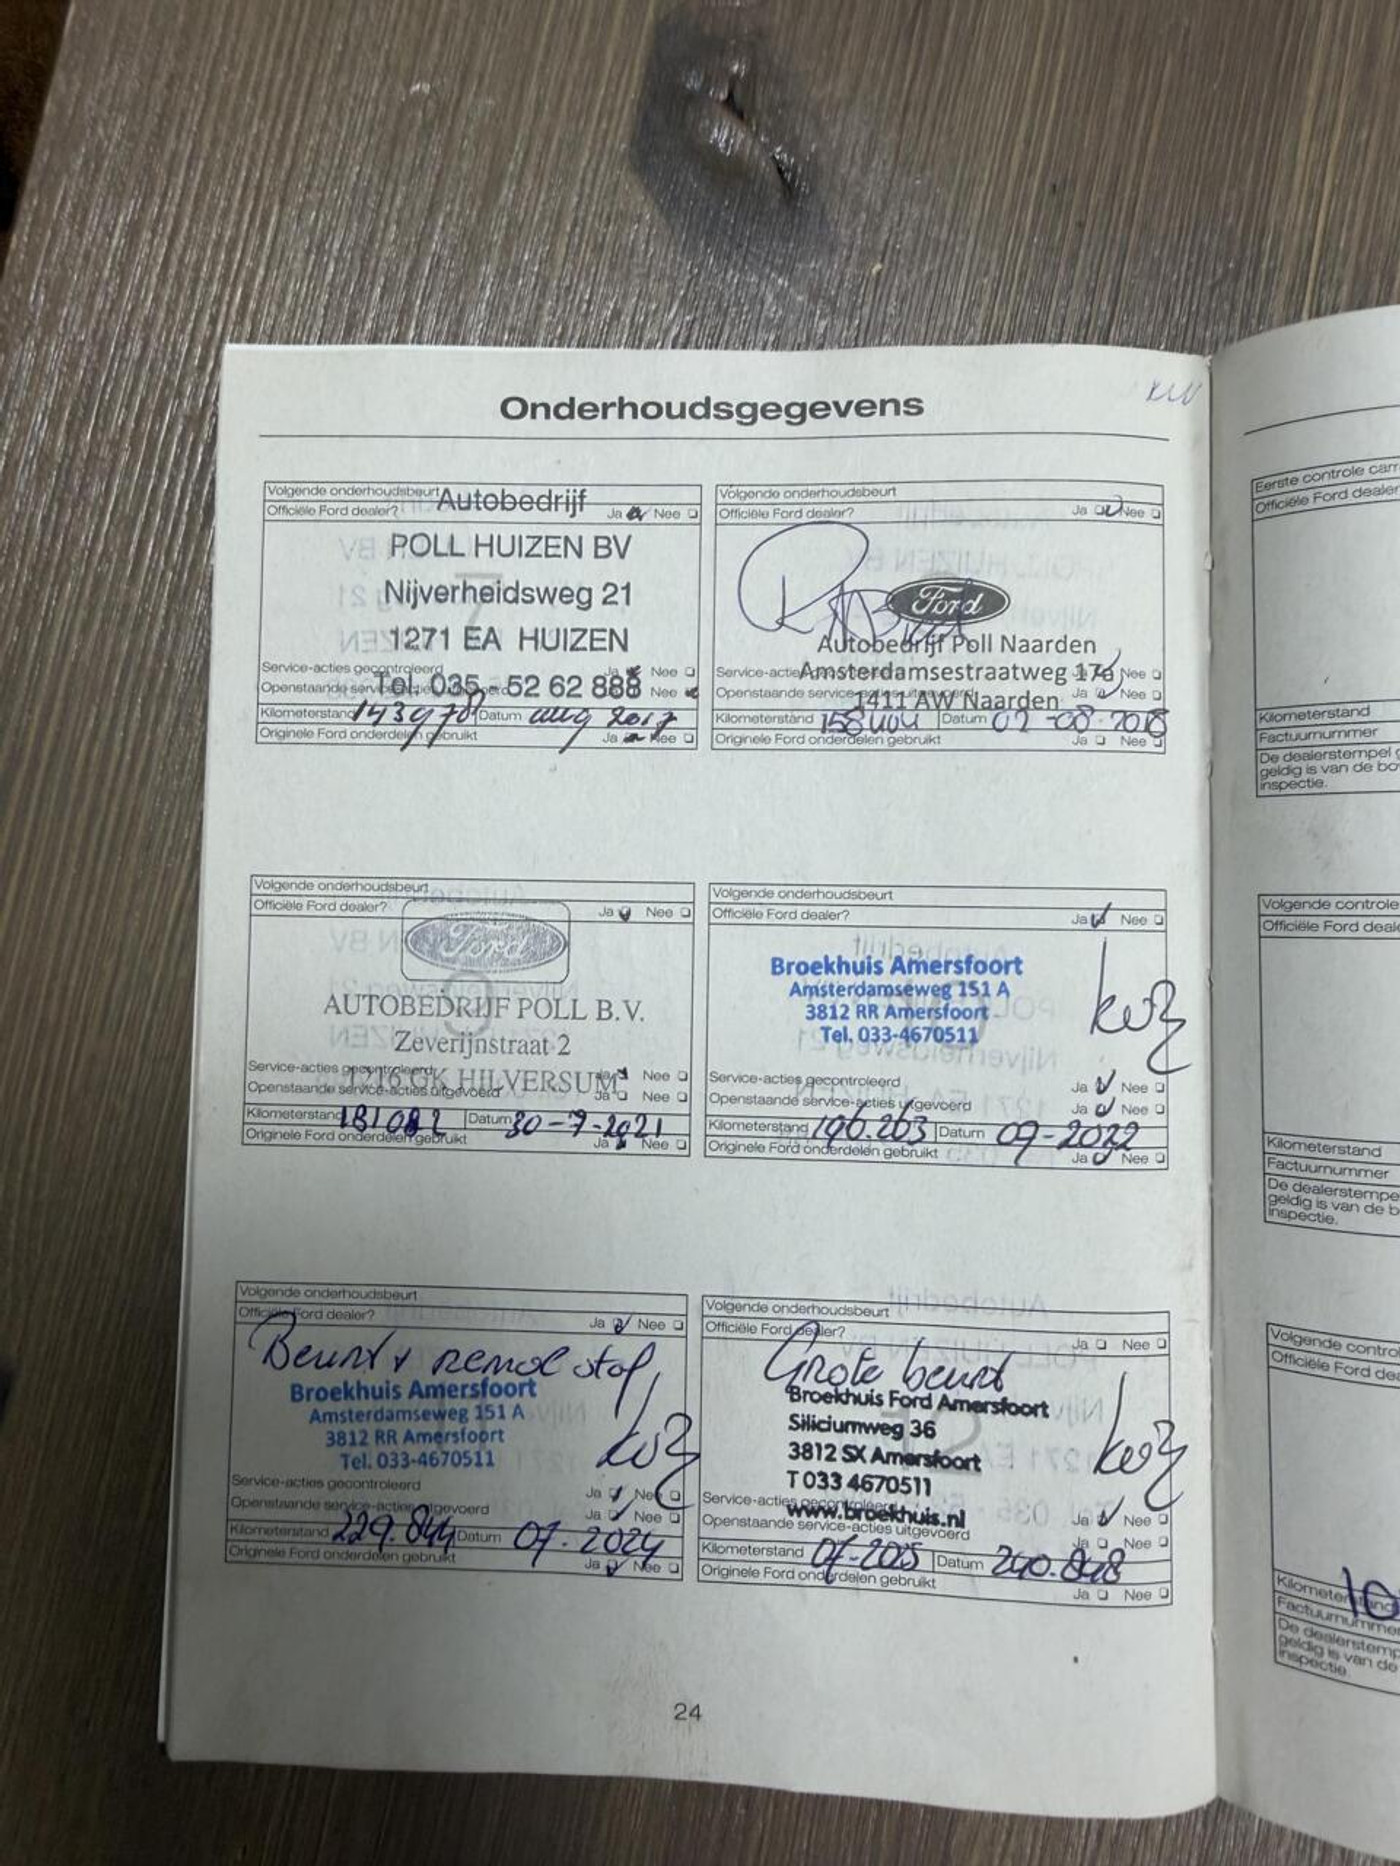 Onderhoudsgegevens
Volgende onderhoudsbeurt
Officiële Ford dealer? Ja Nee
Autobedrijf
POLL HUIZEN BV
Nijverheidsweg 21
1271 EA HUIZEN
Tel. 035 - 52 62 888
Service-acties gecontroleerd Ja Nee
Openstaande service-acties uitgevoerd Nee
Kilometerstand 143978 Datum aug 2017
Originele Ford onderdelen gebruikt Ja Nee
Volgende onderhoudsbeurt
Officiële Ford dealer? Ja Nee
Ford
Autobedrijf Poll Naarden
Amsterdamsestraatweg 17a
1411 AW Naarden
Service-acties Nee
Openstaande service-acties uitgevoerd Ja Nee
Kilometerstand Datum 02-08-2018
Originele Ford onderdelen gebruikt Ja Nee
Volgende onderhoudsbeurt
Officiële Ford dealer? Ja Nee
Ford
AUTOBEDRIJF POLL B.V.
Zeverijnstraat 2
1216 GK HILVERSUM
Service-acties gecontroleerd Nee
Openstaande service-acties uitgevoerd Ja Nee
Kilometerstand 181082 Datum 30-7-2021
Originele Ford onderdelen gebruikt Ja Nee
Volgende onderhoudsbeurt
Officiële Ford dealer? Ja Nee
Broekhuis Amersfoort
Amsterdamseweg 151 A
3812 RR Amersfoort
Tel. 033-4670511
Service-acties gecontroleerd Ja Nee
Openstaande service-acties uitgevoerd Ja Nee
Kilometerstand 196.263 Datum 09-2022
Originele Ford onderdelen gebruikt Ja Nee
Volgende onderhoudsbeurt
Officiële Ford dealer? Ja Nee
Beurt + remol stof
Broekhuis Amersfoort
Amsterdamseweg 151 A
3812 RR Amersfoort
Tel. 033-4670511
Service-acties gecontroleerd Ja Nee
Openstaande service-acties uitgevoerd Ja Nee
Kilometerstand 229.844 Datum 07-2024
Originele Ford onderdelen gebruikt Ja Nee
Volgende onderhoudsbeurt
Officiële Ford dealer? Ja Nee
Grote beurt
Broekhuis Ford Amersfoort
Siliciumweg 36
3812 SX Amersfoort
T 033 4670511
www.broekhuis.nl
Service-acties gecontroleerd Ja Nee
Openstaande service-acties uitgevoerd Ja Nee
Kilometerstand 07-2025 Datum 240.848
Originele Ford onderdelen gebruikt Ja Nee
24
Eerste controle
Officiële Ford dealer
Kilometerstand
Factuurnummer
De dealerstempel
geldig is van de
inspectie.
Volgende controle
Officiële Ford
Kilometerstand
Factuurnummer
De dealerstempel
geldig is van de
inspectie.
Volgende
Officiële Ford
Kilometerstand 10
Factuurnummer
De dealerstempel
geldig is van de
inspectie.